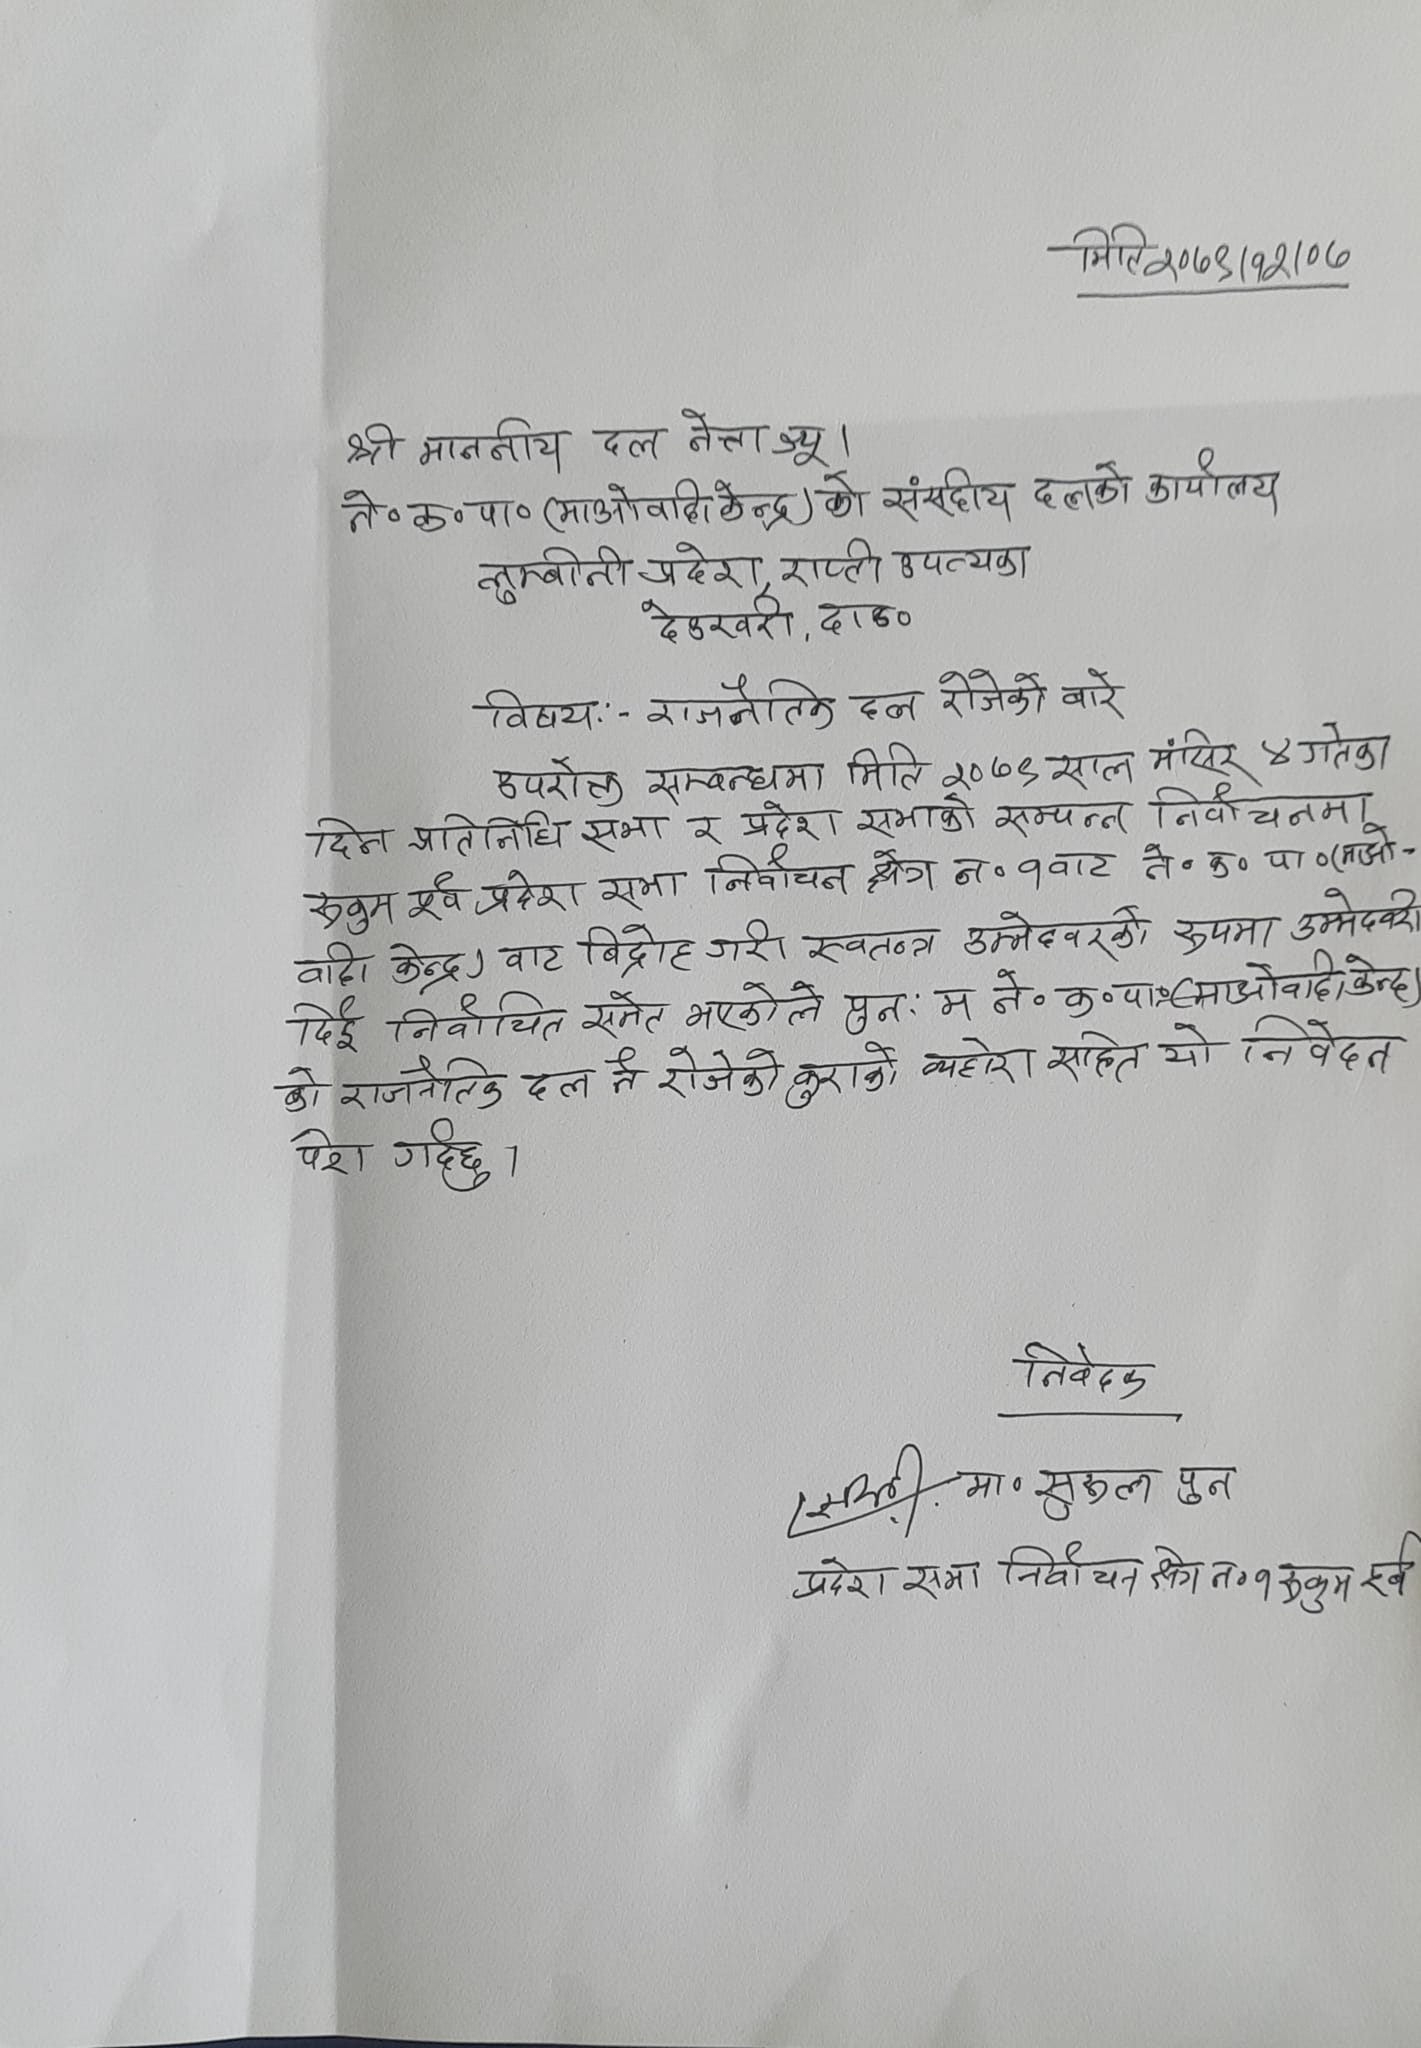 मिति २०७९/१२/०७
श्री माननीय दल नेत्ता ज्यू।
ने॰क॰पा॰(माओवादी केन्द्र)को संसदीय दलको कार्यालय
लुम्बीनी प्रदेश, राप्ती उपत्यका
देउखरी, दाङ॰
विषय:- राजनैतिक दल रोजेको बारे
उपरोक्त सम्बन्धमा मिति २०७९ साल मंसिर ४ गतेका
दिन प्रतिनिधि सभा र प्रदेश सभाको सम्पन्न निर्वाचनमा
रूकुम पूर्व प्रदेश सभा निर्वाचन क्षेत्र न॰ १ बाट ने॰क॰पा॰(माओ-
वादी केन्द्र) बाट बिद्रोह गरी स्वतन्त्र उम्मेदवरको रूपमा उम्मेदवरी
दिई निर्वाचित समेत भएकोले पुन: म ने॰क॰पा॰(माओवादी केन्द्र)
को राजनैतिक दल नै रोजेको कुराको व्यहोरा सहित यो निवेदन
पेश गर्दछु।
निवेदक
मा॰ सुकल पुन
प्रदेश सभा निर्वाचन क्षेत्र न॰ १ रूकुम पूर्व